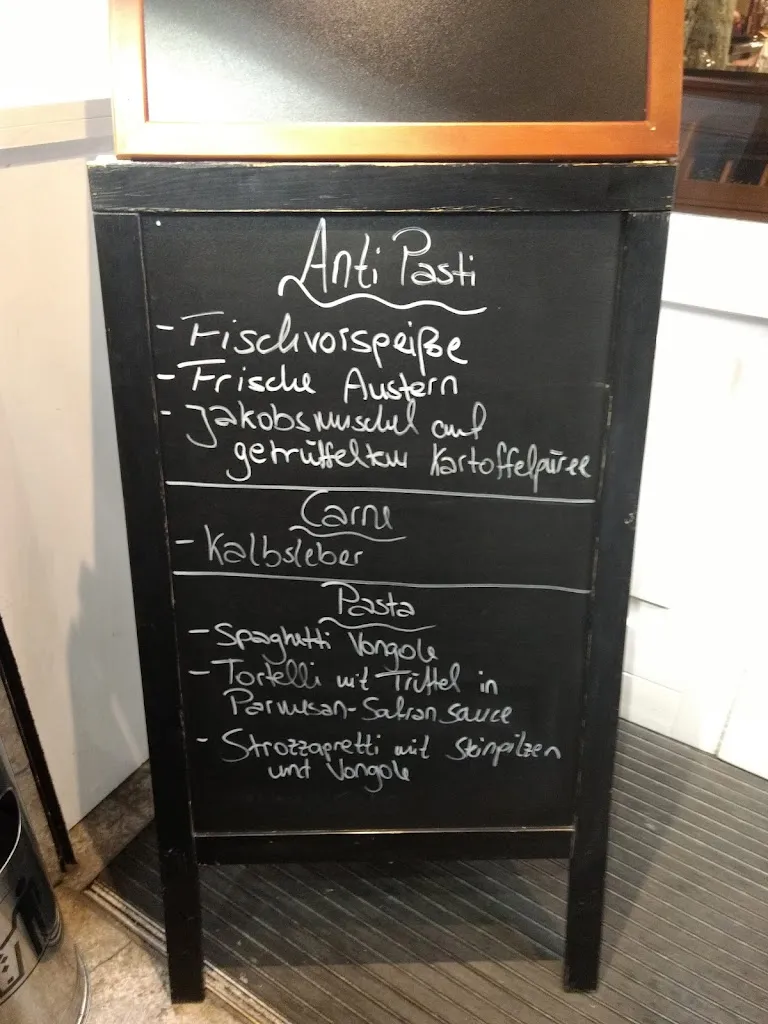 Anti Pasti
- Fischvorspeiße
- Frische Austern
- Jakobsmuschel auf
getrüffeltem Kartoffelpüree
Carne
- Kalbsleber
Pasta
- Spaghetti Vongole
- Tortelli mit Trüffel in
Parmesan-Safransauce
- Strozzapretti mit Steinpilzen
und Vongole